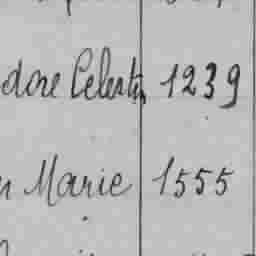 dore Celestin 1239
Marie 1555